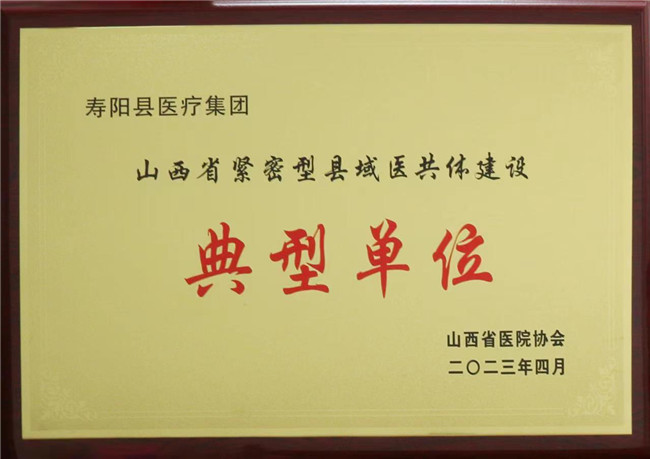 寿阳县医疗集团
山西省紧密型县域医共体建设
典型单位
山西省医院协会
二〇二三年四月